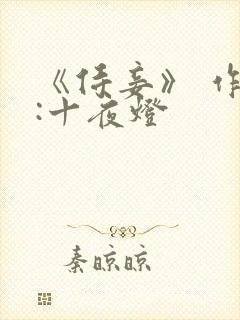 《侍妾》 作
:十夜燈
秦晾晾